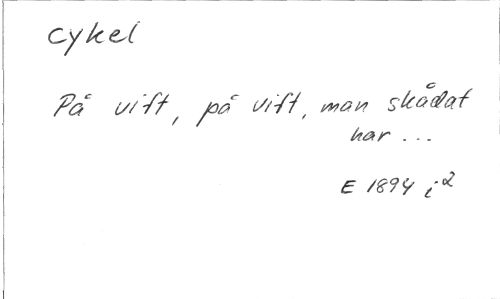 Cykel
På vift, på vift, man skådat
har ...
E 1894 i²